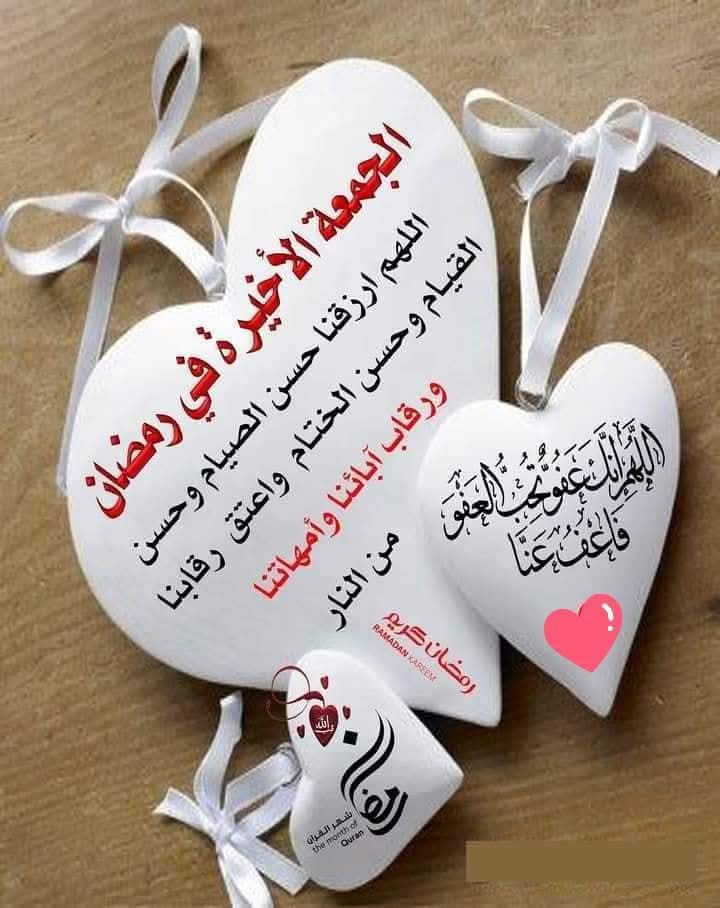 الجمعة الأخيرة في رمضان
اللهم ارزقنا حسن الصيام وحسن
القيام وحسن الختام واعتق رقابنا
ورقاب آبائنا وأمهاتنا
من النار
رمضان كريم
RAMADAN KAREEM
اللَّهُمَّ إِنَّكَ عَفُوٌّ تُحِبُّ الْعَفْوَ
فَاعْفُ عَنَّا
الله
رمضان
شهر القرآن
the month of
Quran